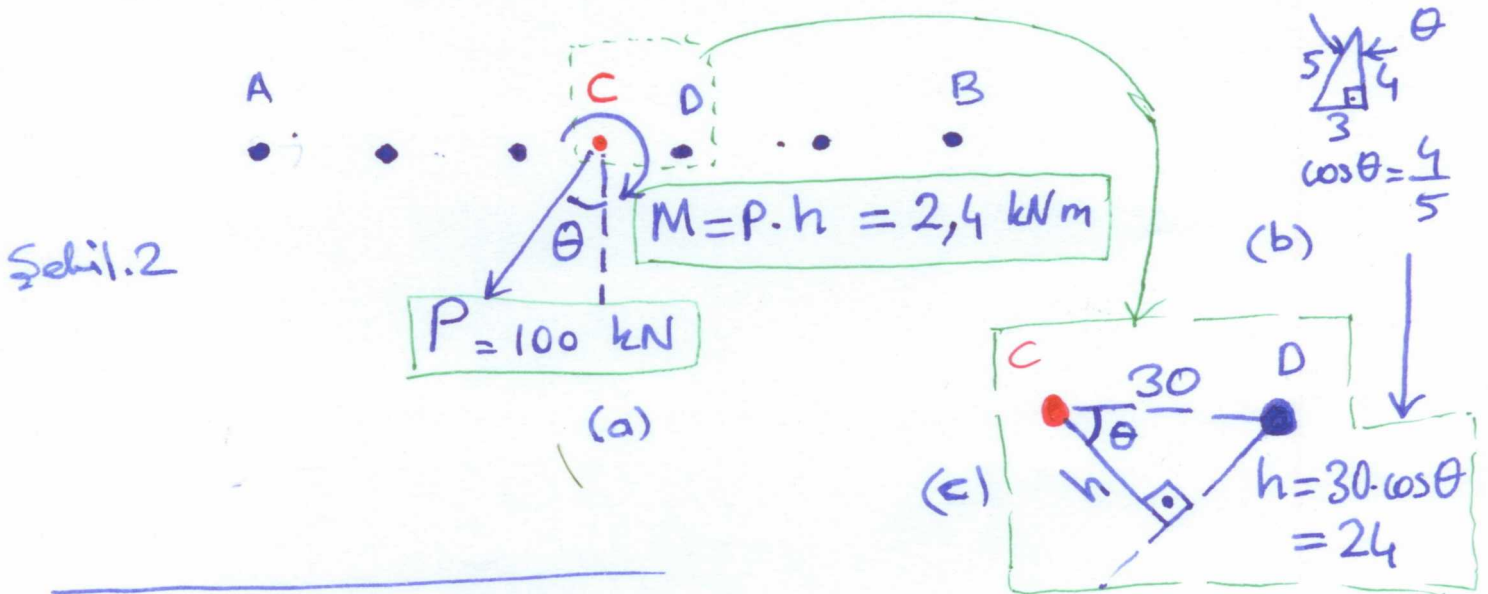 Şekil.2
A
C
D
B
θ
M=P.h = 2,4 kNm
P = 100 kN
(a)
5
θ
4
3
cosθ=4/5
(b)
C
30
D
θ
h
(c)
h=30.cosθ
=24